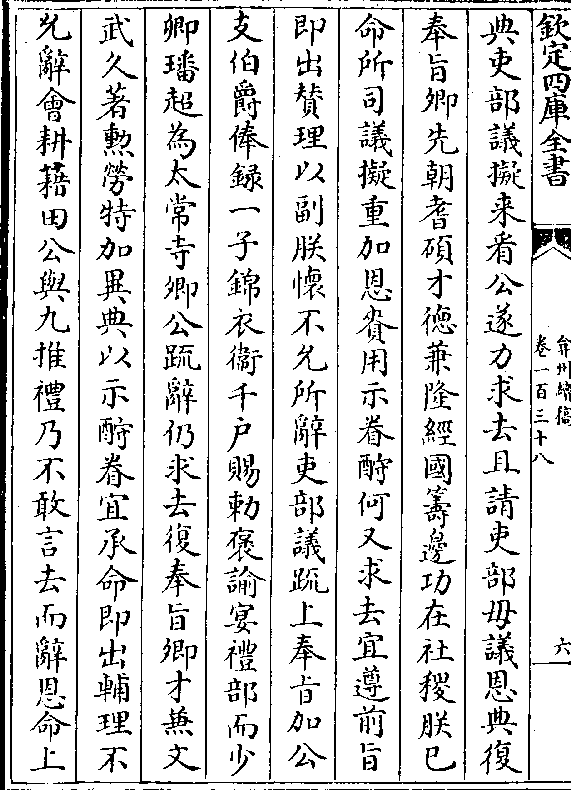 欽定四庫全書
弇州續稿
卷一百三十八
六
典吏部議擬来看公遂力求去且請吏部毋議恩典復
奉旨卿先朝耆碩才德兼隆經國籌邊功在社稷朕已
命所司議擬重加恩賚用示眷酧何又求去宜遵前旨
即出賛理以副朕懷不允所辭吏部議疏上奉旨加公
支伯爵俸録一子錦衣衞千户賜勅褒諭宴禮部而少
卿璠超為太常寺卿公疏辭仍求去復奉旨卿才兼文
武久著勲勞特加異典以示酧眷宜承命即出輔理不
允辭會耕藉田公與九推禮乃不敢言去而辭恩命上